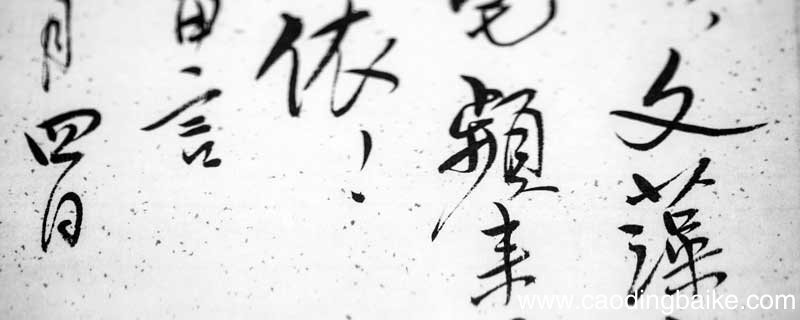 文藻
頻来
依！
留言
月四日
www.caodingbaike.com